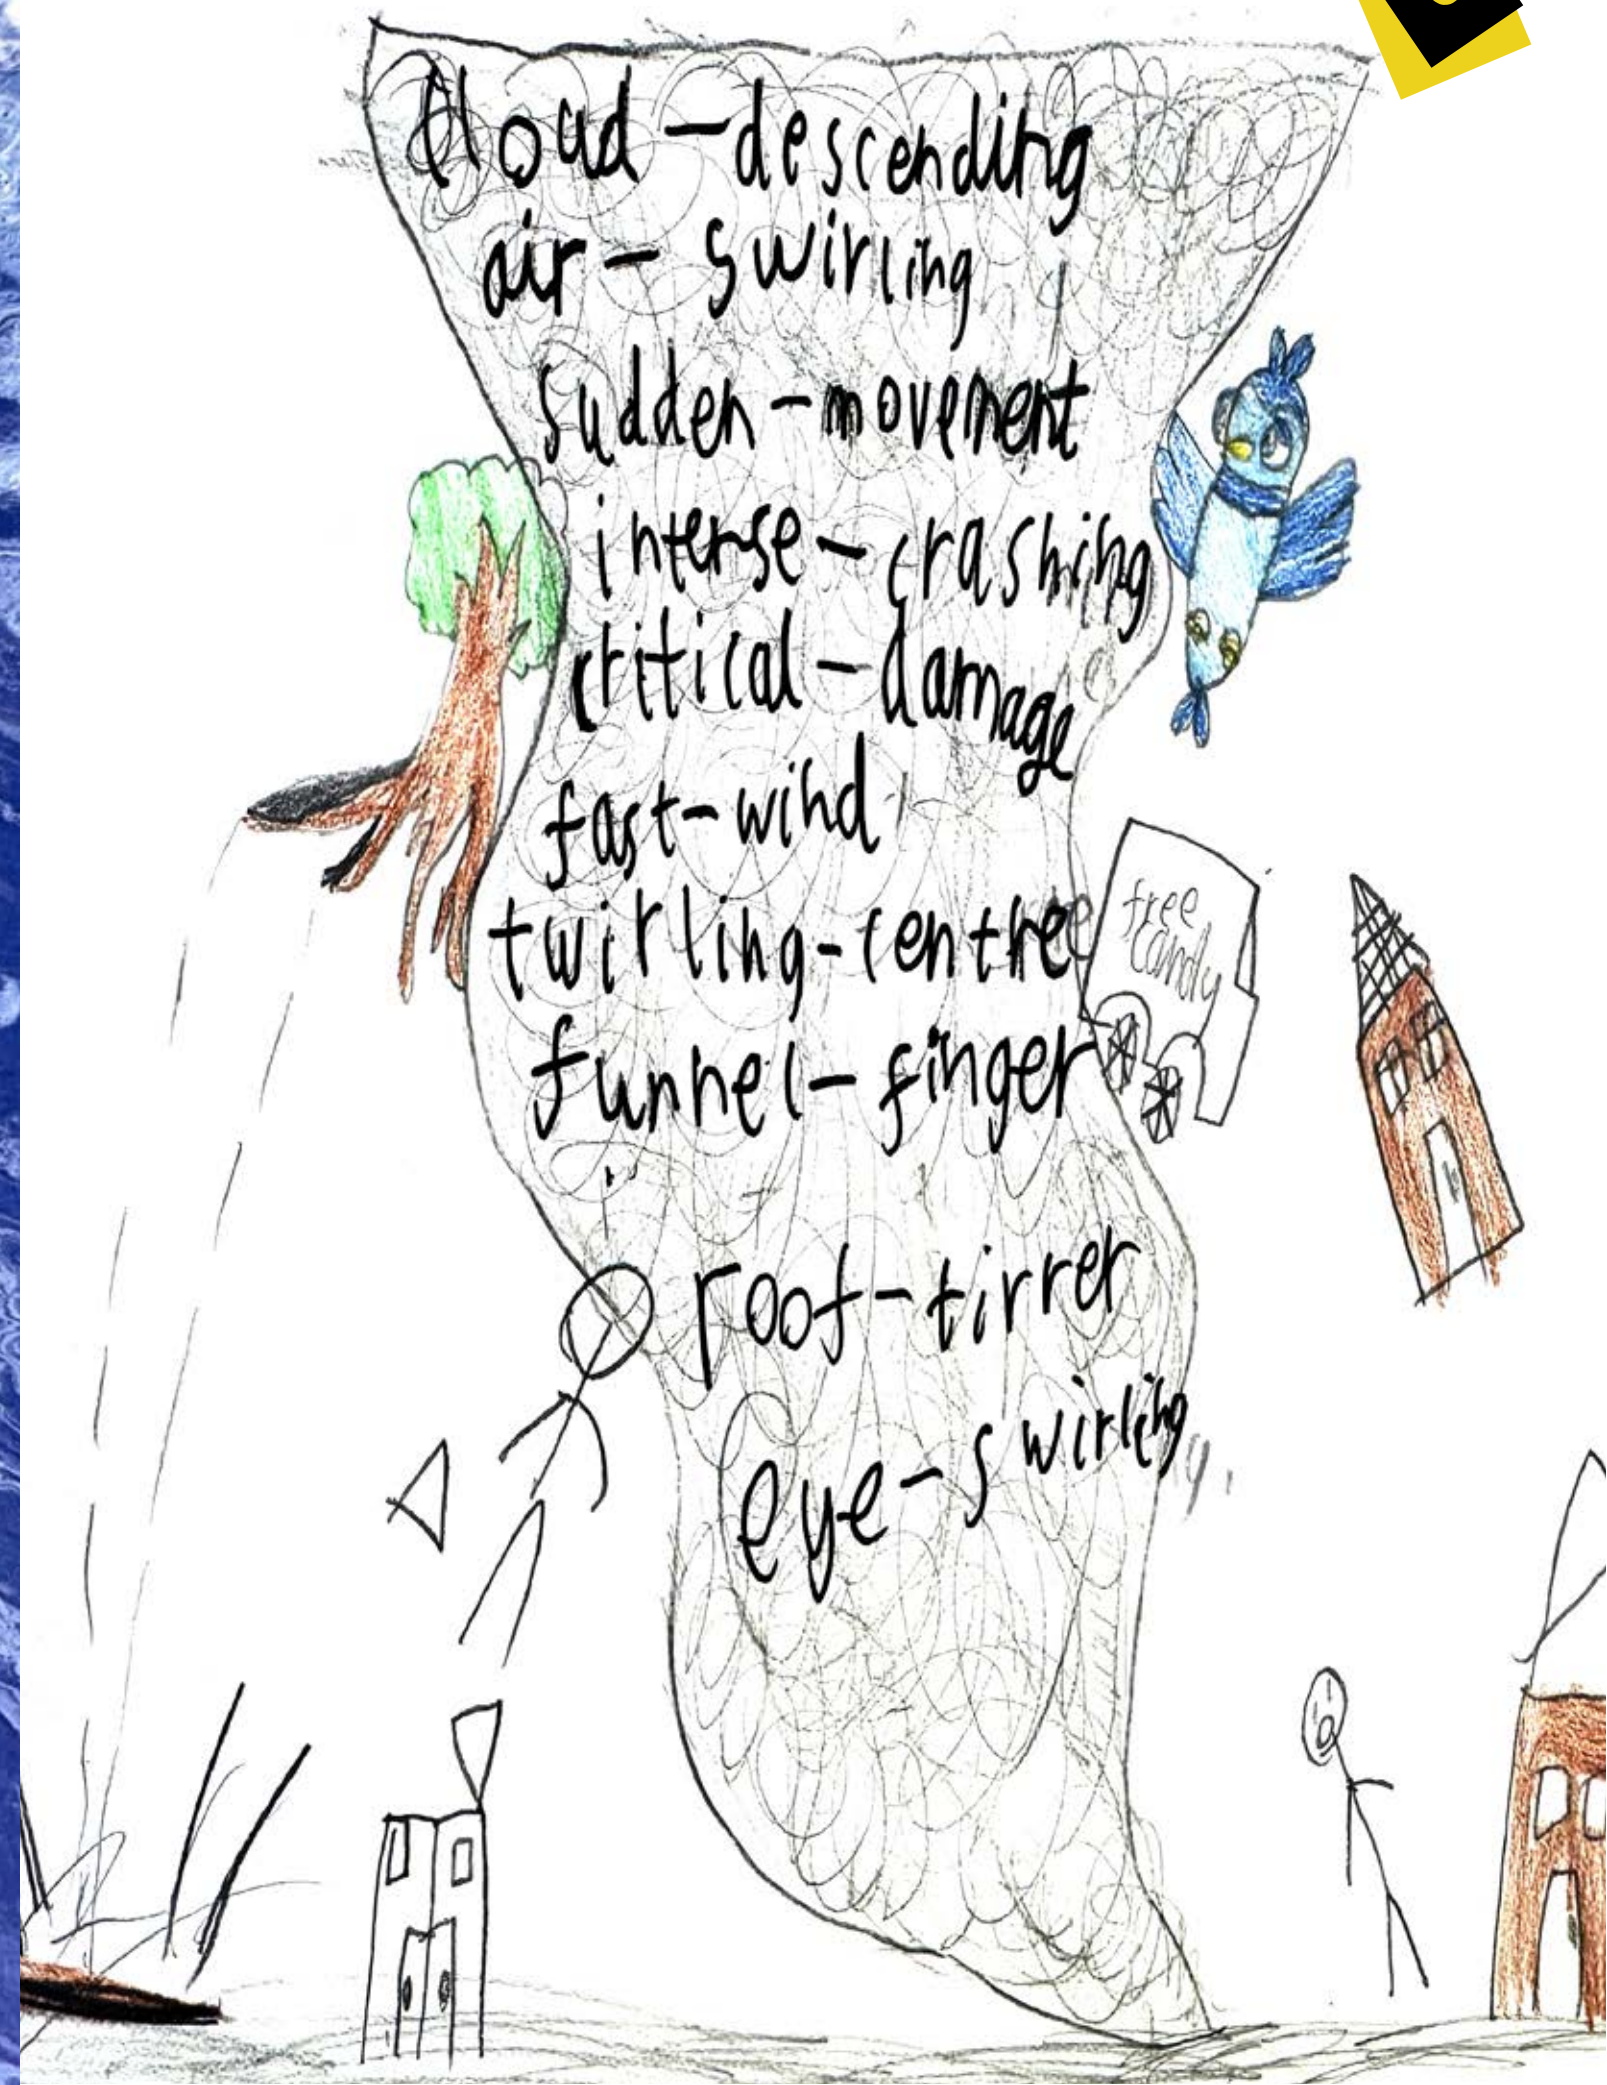 cloud - descending
air - swirling
sudden - movement
intense - crashing
critical - damage
fast - wind
twirling - centre
free
candy
funnel - finger
roof - tirrer
eye - swirling